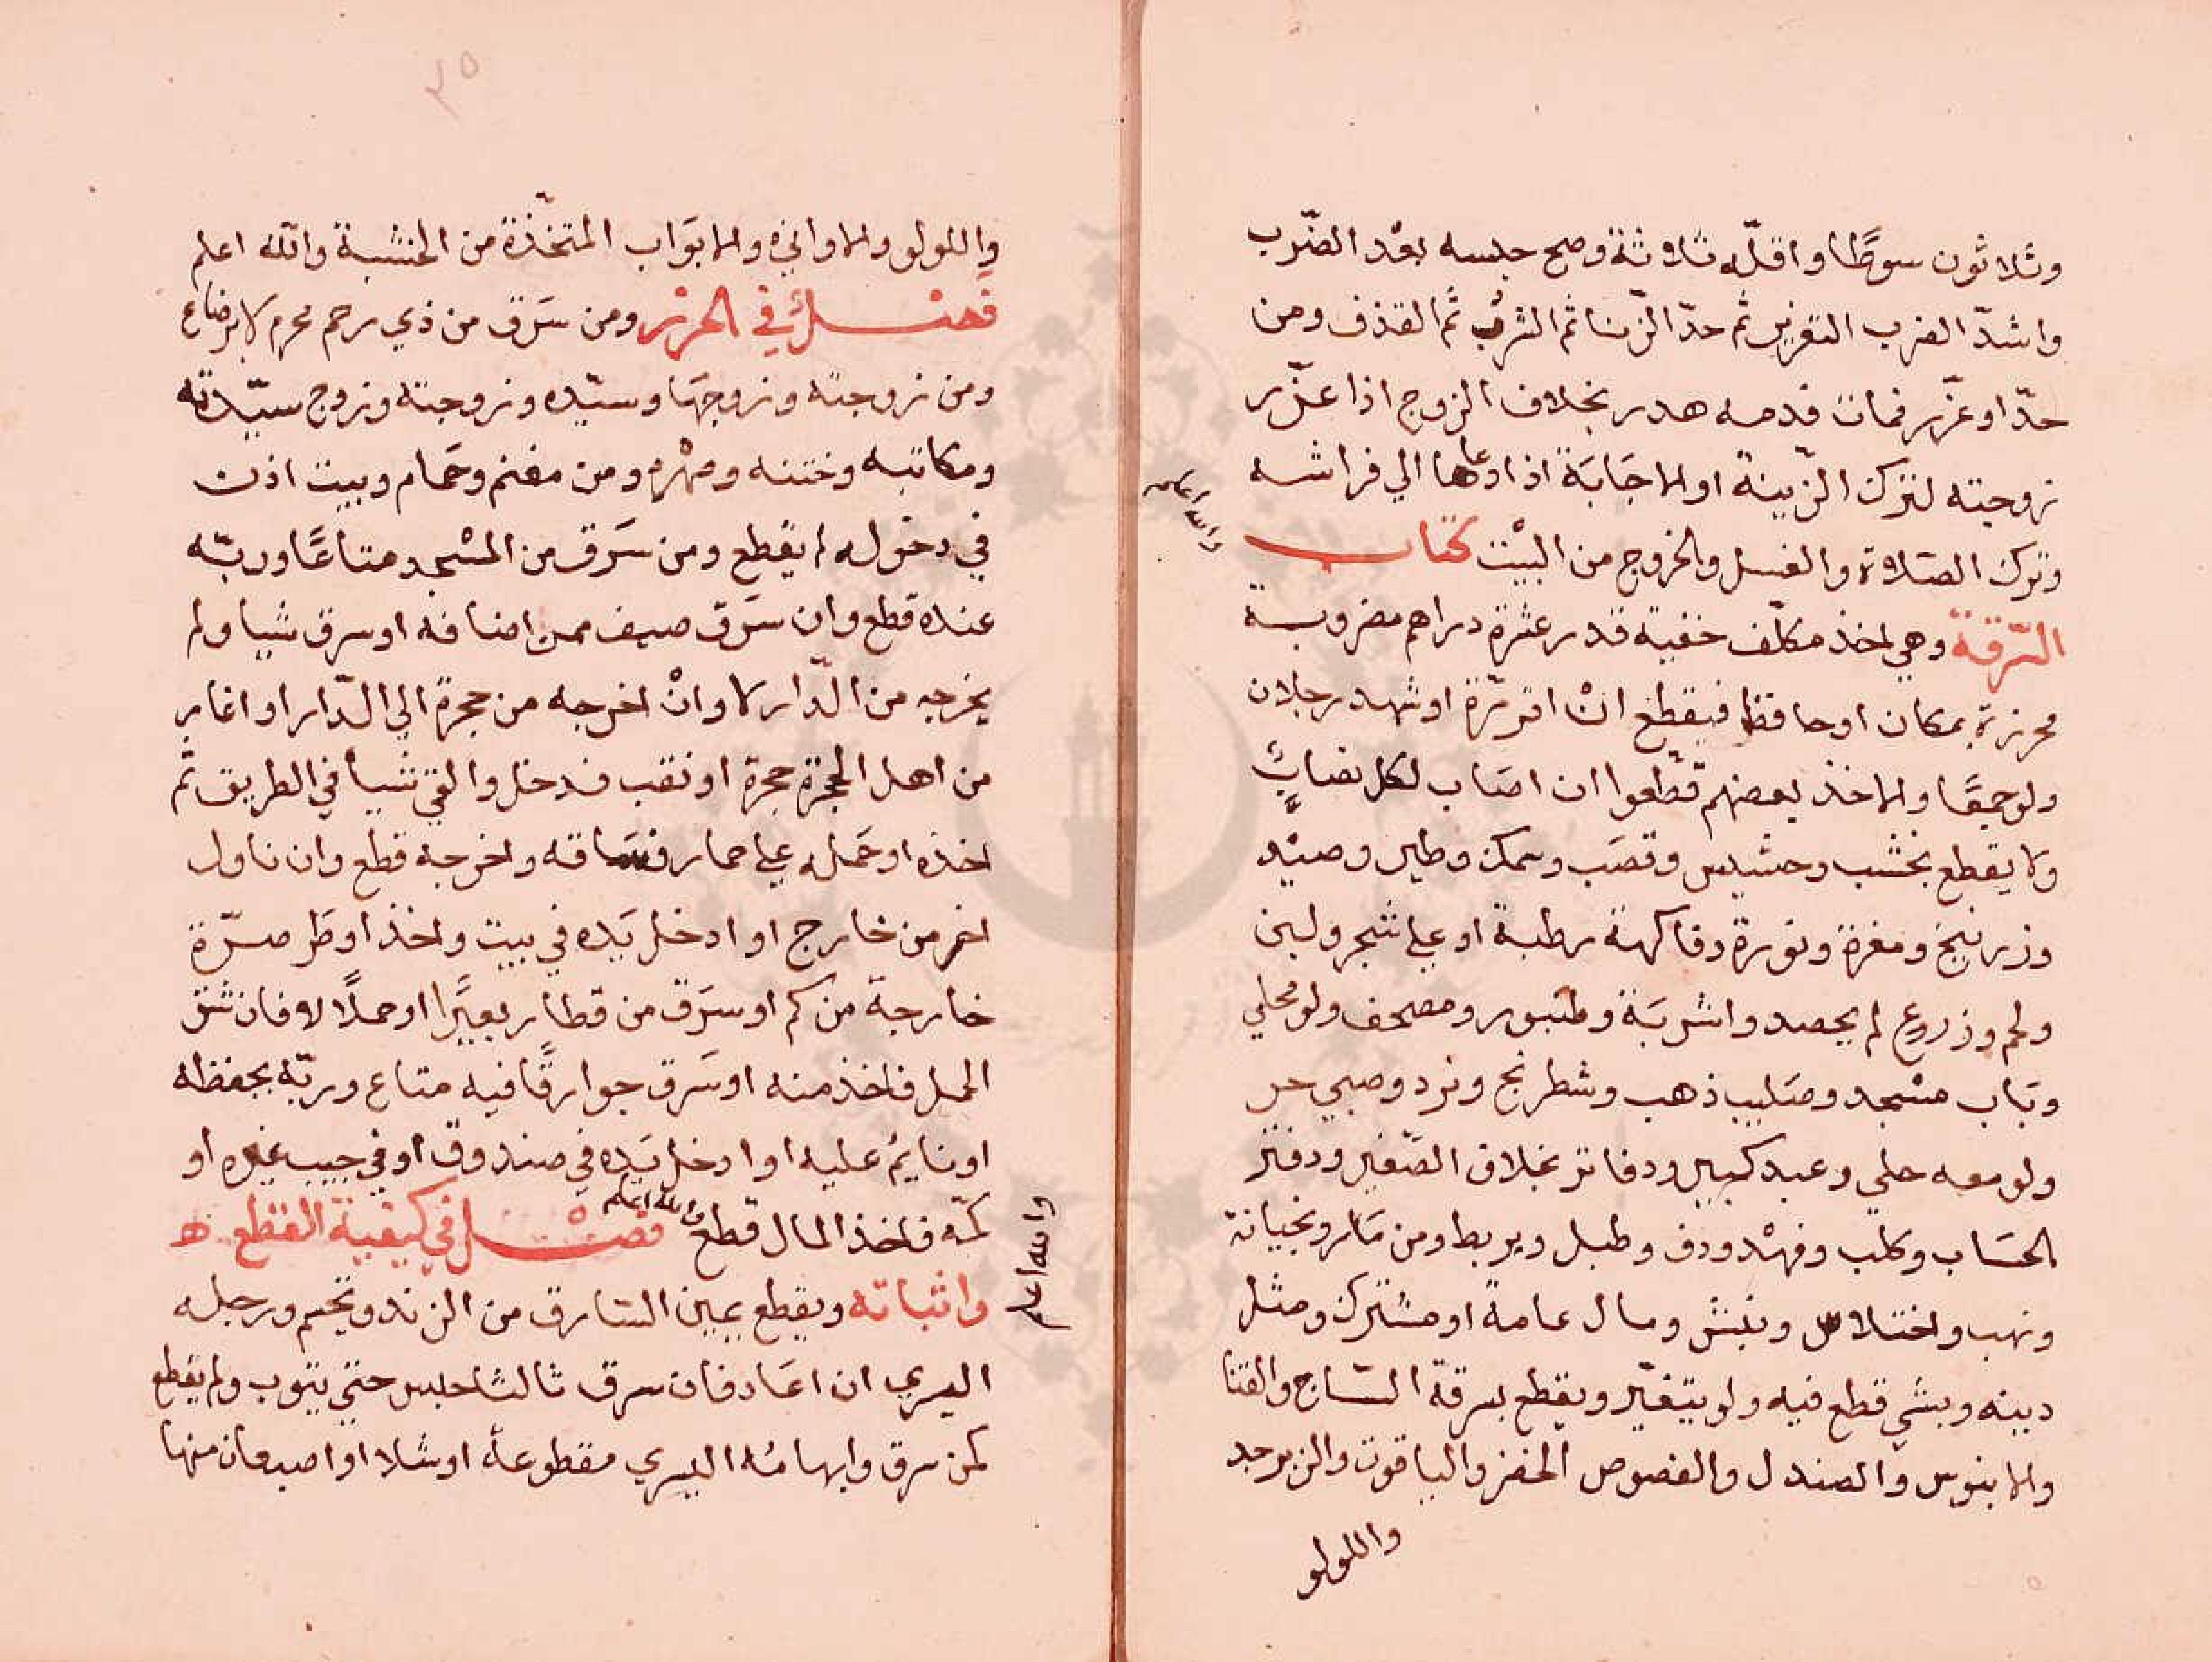 وثلاثون سوطًا واقلّه ثلاثة وصح حبسه بعْد الضّرب
واشدّ الضرب التعزير ثم حدّ الزّنا ثم الشرب ثم القذف ومن
حدّ او عزّر فمات فدمه هدر بخلاف الزوج اذا عزّر
زوجته لترك الزّينة او الاجَابَة اذا دعاها الي فراشه
وترك الصّلاة والغسل والخروج من البيْت كتاب
والله اعلم
السّرقة وهي اخذ مكلّف خفية قدر عشرة دراهم مضروبة
محرزة بمكان او حافظ فيقطع انْ اقر مرّة او شهد رجلان
ولو جمعًا والاخذ بعضهم قطّعوا ان اصَاب لكل نصابٌ
ولا يقطع بخشب وحشيش وقصَب وسمك وطير وصيْد
وزرنيخ ومغرة ونورة وفاكهة رطبة او علي شجر ولبن
ولحم وزروع لم يحصد واشربَة وطنبور ومصحف ولو محلي
وبَاب مسْجد وصَليب ذهب وشطرنج ونرد وصبي حر
ولو معه حلي وعبد كبير ودفاتر بخلاف الصّغير ودفتر
الحسَاب وكلب وفهْد ودف وطبل وبربط ومن مَار وبخيانة
ونهب واختلاس ونبش ومال عامة او مشترك ومثل
دينه وبشي قطع فيه ولو يتغيّر ويقطع بسرقة السّاج والقنا
والابنوس والصندل والفصوص الخضر والياقوت والزبرجد
واللولو
٢٥
واللولو والاواني والابوَاب المتخّذة من الخشبة والله اعلم
فصْــل في الحرْز ومن سَرَق من ذي رحم محرم لا برضاع
ومن زوجته وزوجهَا وسيّده وزوجته وزوج سيّدته
ومكاتبه وختنه وصهْره ومن مغنم وحَمام وبيت اذن
في دخوله لم يقْطع ومن سَرَق من المسْجد متاعًا وربّه
عنده قطع وان سَرَق ضيف ممن اضافه او سرق شيا ولم
يخرجه من الدّار لا وانْ اخرجه من حجرة الي الدّار او اغار
من اهل الحجرة حجرة او نقب فدخل والقي شيأ في الطريق ثم
اخذه او حَمَله علي حمار فسَاقه واخرجه قطع وان ناول
اخر من خارج او ادخل يَده في بيت واخذ او طَر صرّة
خارجة من كم او سَرَق من قطار بعيرًا او حملًا لا فان شق
الحمل فاخذ منه او سَرَق جوارقًا فيه متاع وربّه يحفظه
او نايم عليه او ادخل يَده في صندوق او في جيب غيره او
كمّه فاخذ المال قطع والله اعلم فصْــل في كيفية القطع
والله اعلم
واثباته ويقطع يمين السّارق من الزند وتحسم ورجله
اليسري ان اعَاد فان سرق ثالثا حبس حتي يتوب ولم يقطع
كمن سرق وابهامُه اليسري مقطوعة او شلا او اصبعان منها